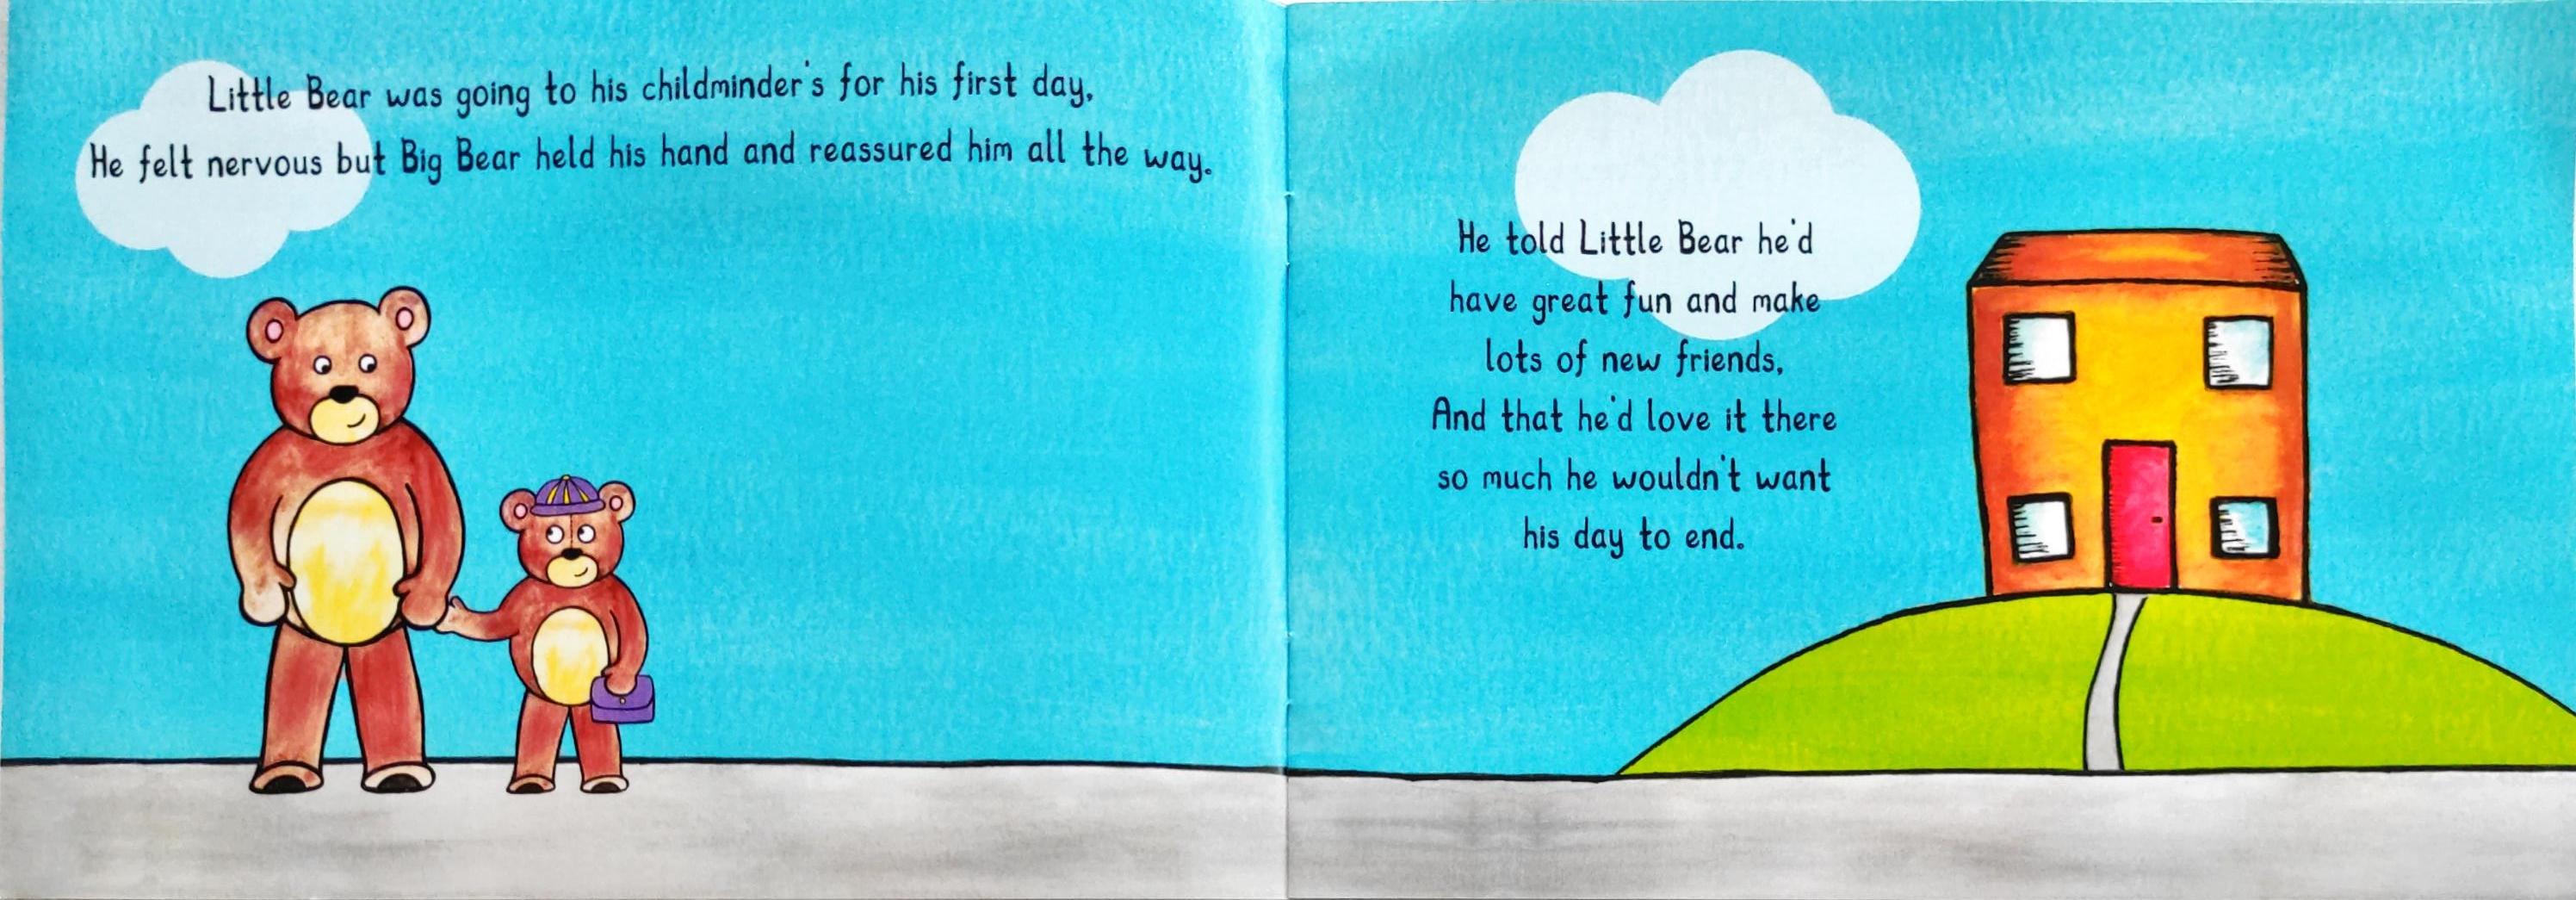 Little Bear was going to his childminder's for his first day,
He felt nervous but Big Bear held his hand and reassured him all the way.
He told Little Bear he'd
have great fun and make
lots of new friends,
And that he'd love it there
so much he wouldn't want
his day to end.